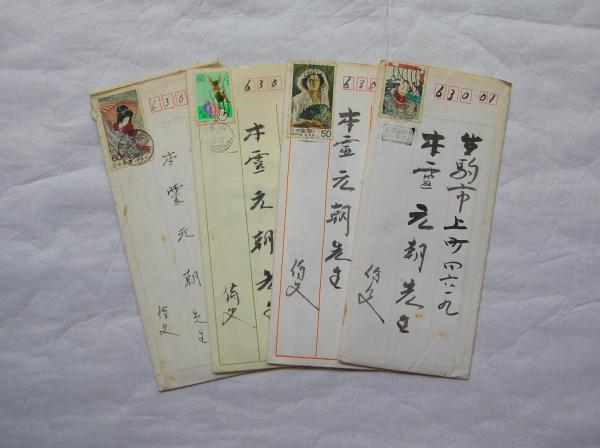 60
630
本霊元朝先生
侍史
60
630
本霊元朝先生
侍史
50
630
本霊元朝先生
侍史
63001
生駒市上町四六二九
本霊元朝先生
侍史